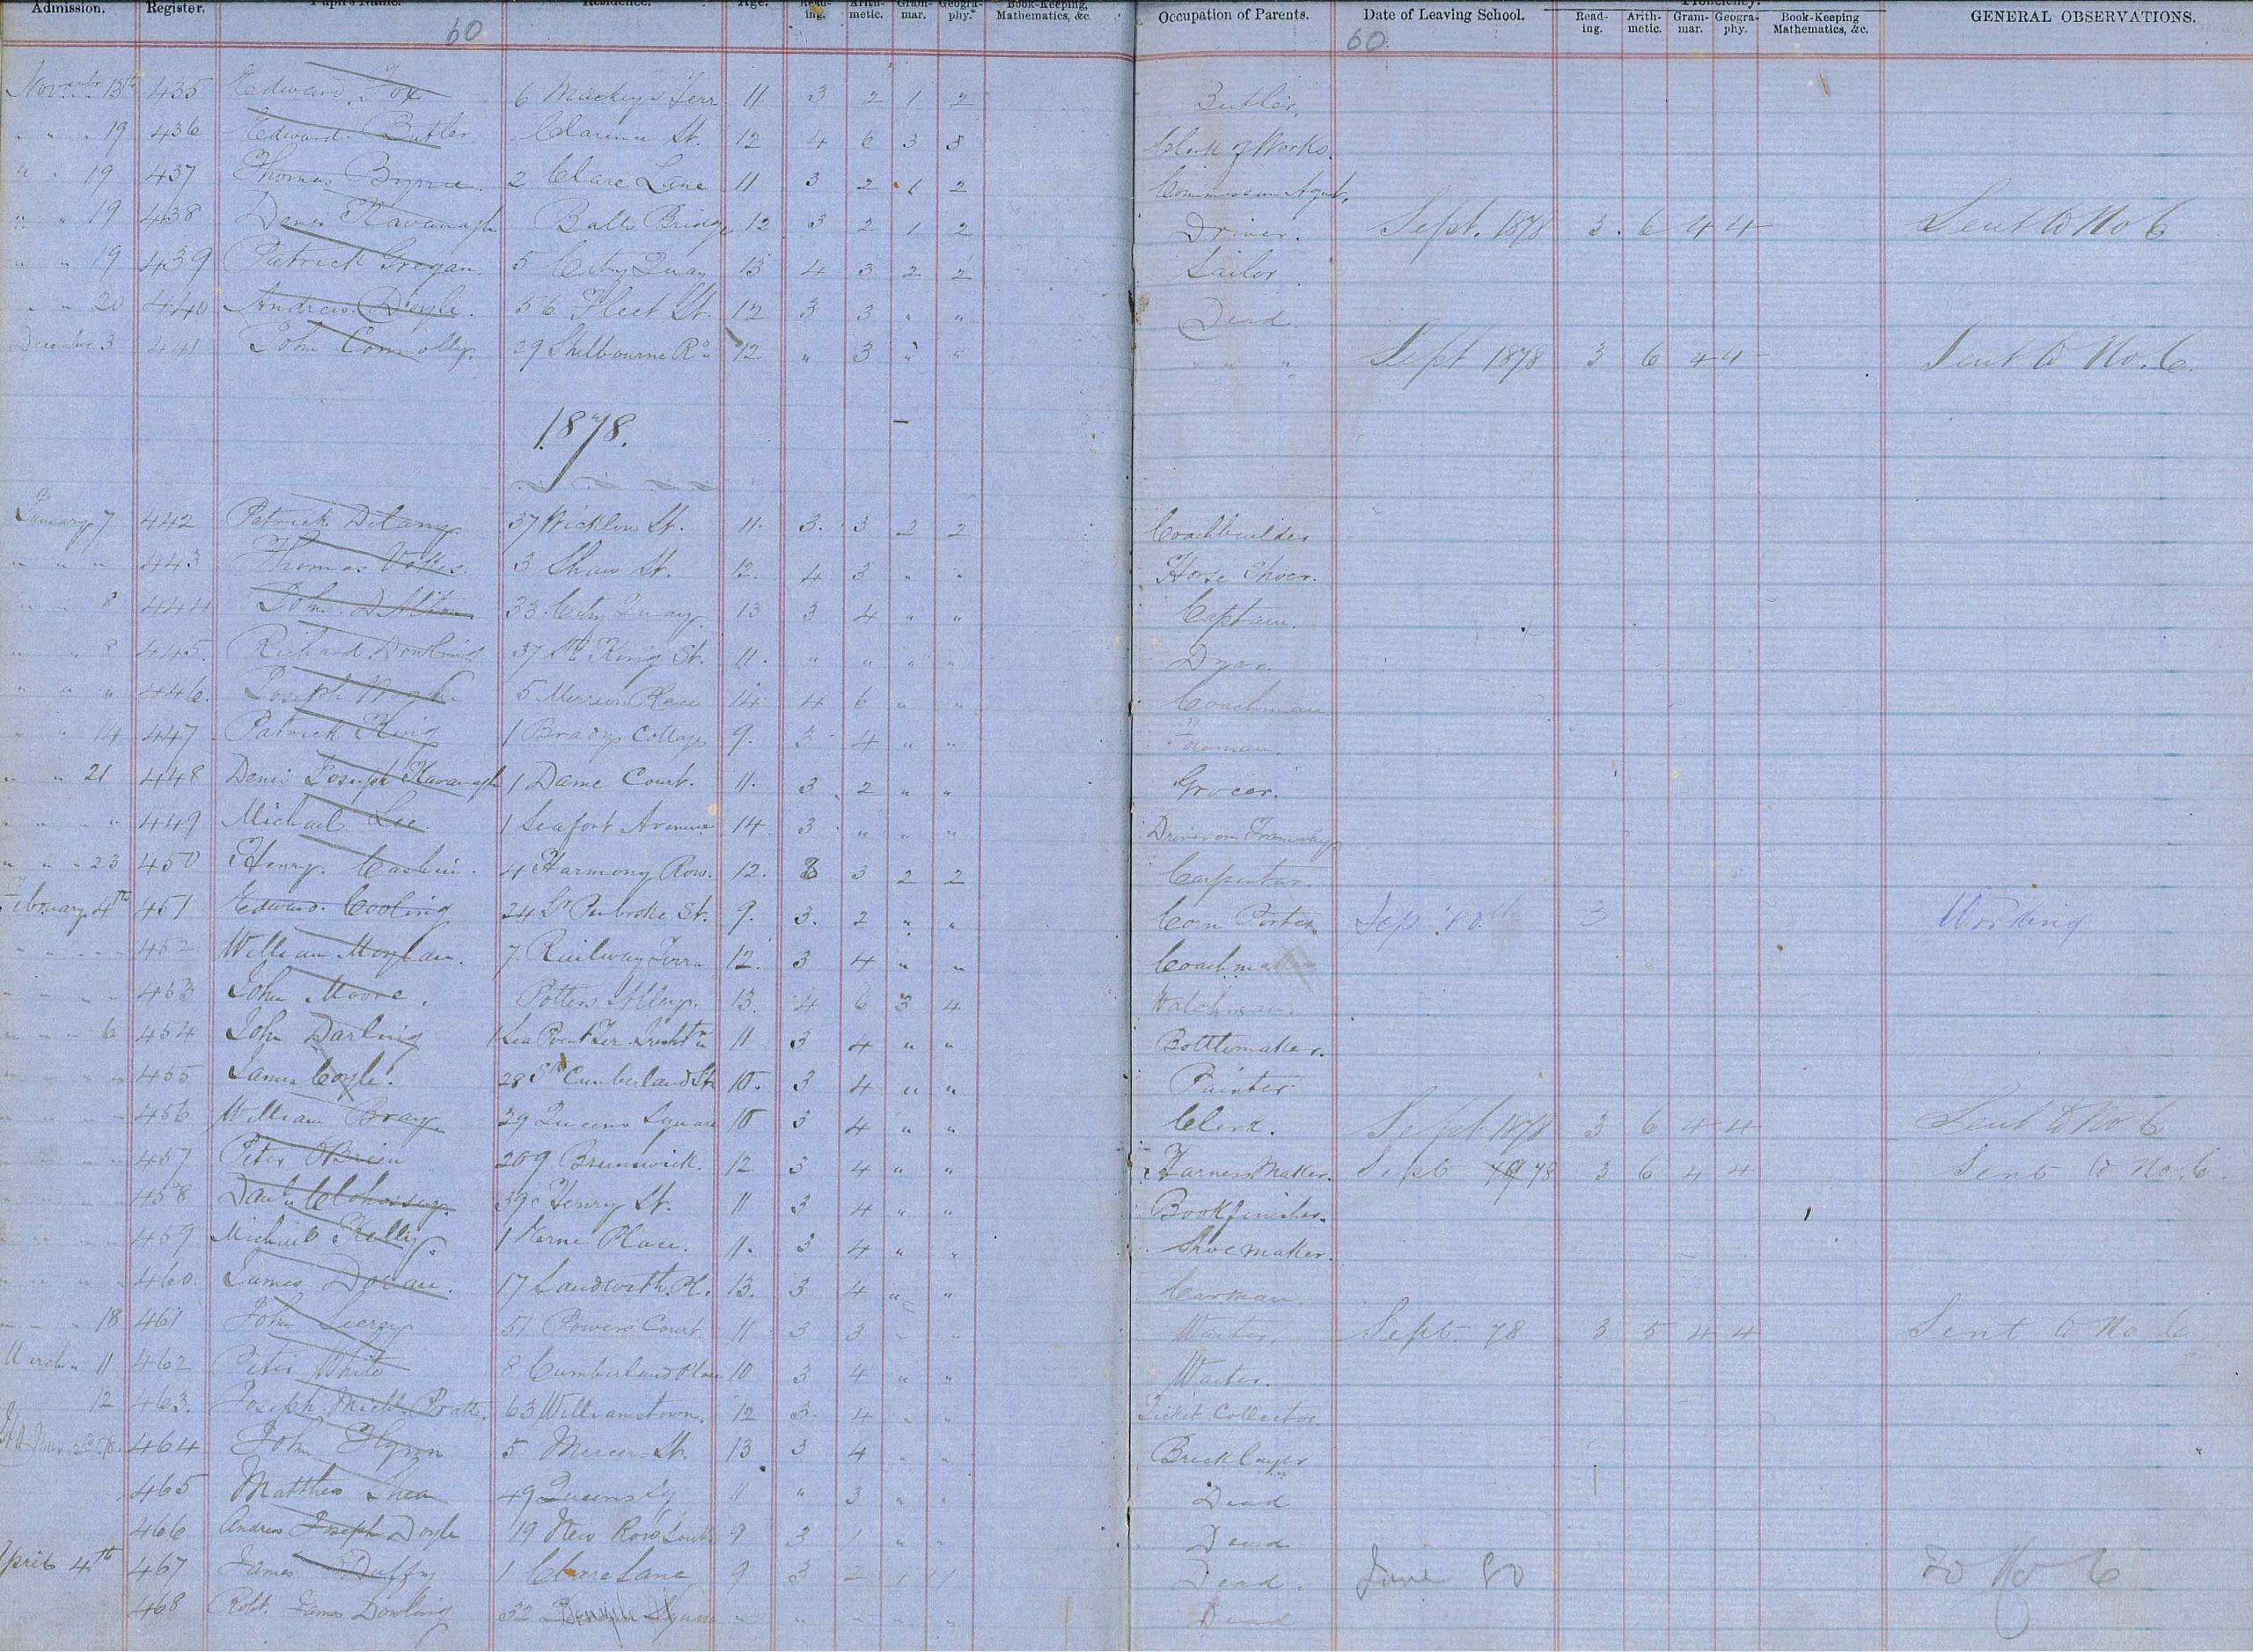 Admission. Register. Pupil's Name. Residence. Age. Read-ing. Arith-metic. Gram-mar. Geogra-phy. Book-Keeping, Mathematics, &c. Occupation of Parents. Date of Leaving School. Read-ing. Arith-metic. Gram-mar. Geogra-phy. Book-Keeping Mathematics, &c. GENERAL OBSERVATIONS.
Proficiency.
60 60
November 13th 435 Edward Fox 6 Mackeys Terr 11 3 2 1 2 Butler.
" " 19 436 Edward Butler Clarence St. 12 4 6 3 3 Clerk of Works.
" " 19 437 Thomas Byrne. 2 Clare Lane 11 3 2 1 2 Commission Agent.
" " 19 438 Denis Kavanagh Balls Bridge 12 3 2 1 2 Driver. Sept. 1878 3 6 4 4 Sent to No 6
" " 19 439 Patrick Grogan. 5 City Quay 13 4 3 2 2 Sailor
" " 20 440 Andrew Doyle. 56 Fleet St. 12 3 3 " " Dead.
December 3 441 John Connolly. 29 Shelbourne Rd 12 " 3 " " " " " Sept 1878 3 6 4 4 Sent to No. 6.
1878.
January 7 442 Patrick Delany 37 Wicklow St. 11. 3. 3 2 2 Coachbuilder
" " " 443 Thomas Vokes. 3 Shaw St. 12. 4 3 " " Horse Shoer.
" " 8 444 John Dalton 33 City Quay 13 3 4 " " Captain.
" " 8 445. Richard Dowling 37 King St. 11. " " " " Dyer.
" " " 446. Joseph 5 Merrion Place 14 4 6 " " Coachman
" " 14 447 Patrick King 1 Bradys Cottage 9. 3 4 " " Foreman.
" " 21 448 Denis Joseph Kavanagh 1 Dame Court. 11. 3 2 " " Grocer.
" " " 449 Michael Lee. 1 Seafort Avenue 14 3 " " " Driver on Tramway
" " 23 450 Henry. Cashin. 4 Harmony Row. 12. 3 3 2 2 Carpenter.
February 4th 451 Edward Cooling 24 Lr Pembroke St. 9. 3. 2 " " Corn Porter Sep 80 3 Working
" " " 452 William Moylan. 7. Railway Terr. 12. 3 4 " " Coachmaker
" " " 453 John Moore. Potters Alley. 13. 4 6 3 4 Watchman.
" " 6 454 John Darling 1 Sea Point Ter Irishtn 11 3 4 " " Bottlemaker.
" " " 455 James Coyle. 28 Sth Cumberland St 10. 3 4 " " Painter
" " " 456 William Bray. 29 Queens Square 10 3 4 " " Clerk. Sept 1878 3 6 4 4 Sent to No 6
" " " 457 Peter OBrien 209 Brunswick. 12 3 4 " " Harness Maker. Sept 78 3 6 4 4 Sent to No. 6.
458 Danl. Clohessy. 39 Henry St. 11 3 4 " " Bookfinisher.
459 Michael Kelly. 1 Kerne Place. 11. 3 4 " " Shoemaker.
" " " 460. James Doran. 17 Sandwith Pl. 13. 3 4 " " Carman.
" " 18 461 John Leery 51 Powers Court 11 3 3 " " Waiter. Sept. 78 3 5 4 4 Sent to No 6
March 11 462 Peter White 8 Cumberland Place 10 3 4 " " Waiter.
12 463. Joseph Michl. Pratt. 63 Williamstown. 12 3. 4 " " Ticket Collector.
464 John Flynn 5 Mercer St. 13 3 4 " " Bricklayer
465 Matthew Shea 49 Queens Sq 11 " 3 " " Dead
466 Andrew Joseph Doyle 19 New Row South 9 3 1 " " Dead
April 4th 467 James Duffy 1 Clare Lane 9 3 2 1 1 Dead. June 80 To No 6
468 Robt. James Dowling 32 Square " " " " " Dead